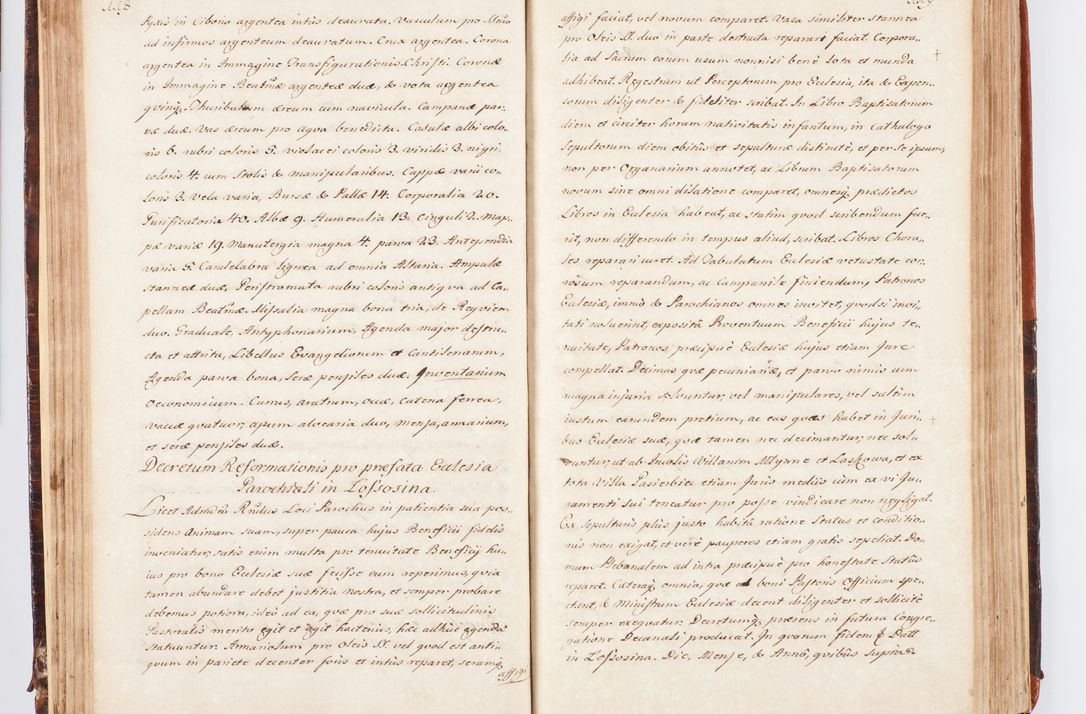 pyxis in Ciborio argentea intus deaurata. Vasculum pro
ad infirmos argenteum deauratum. Crux argentea. Corona
argentea in Immagine Transfigurationis Christi. Coronæ
in Immagine Beatmæ argenteæ duæ, & vota argentea
qvinq. Thuribulum æreum cum navicula. Campanæ par„
væ duæ. Vas æreum pro aqva benedicta. Casulæ albi colo„
ris 6. rubri coloris 5. violacei coloris 3. viridis 3. nigri
coloris 4. cum Stolis & manipularibus. Cappæ varii co„
loris 3. Vela varia, Bursæ & Pallæ 14. Corporalia 20.
Purificatoria 40. Albæ 9. Humeralia 13. Cinguli 2. Map„
pæ variæ 19. Manutergia magna 4. parva 23. Antependia
varia 5. Candelabra lignea ad omnia Altaria. Ampulæ
stanneæ duæ, Peristromata rubri coloris antiqva ad Ca„
pellam Beatmæ. Missalia magna bona tria, de Reqviem
duo. Graduale, Antyphonarium, Agenda major destru„
cta et attrita, Libellus Evangeliorum et Cantilenarum,
Agenda parva bona, Seræ pensiles duæ. Inventarium
Oeconomicum. Currus, aratrum, occæ, catena ferrea,
vaccæ qvatuor, apum alvearia duo, mensa, armarium,
et seræ pensiles duæ.
Decretum Reformationis pro præfata Ecclesia
Parochiali in Lososina.
Licet Admdm Rndus Loci Parochus in patientia sua pos„
sidens Animam suam, super pauca hujus Beneficii fidelis
inveniatur, satis enim multa pro tenuitate Beneficij hu„
ius pro bono Ecclesiæ suæ fecisse eum reperimus, qvia
tamen abundare debet justitia nostra, et semper probare
debemus potiora, ideò ad ea, qvæ pro sua sollicitudinis
Pastoralis merito egit et agit hactenus, hæc adhuc agenda
statuuntur. Armariolum pro Oleis SS. vel qvod est anti„
qvum in pariete decenter foris et intùs reparet, seramq
affigi
affigi faciat, vel novum comparet. Vasa similiter stannea
pro Oleis SS. duo in parte destructa reparari faciat. Corpora„
lia ad Sacrum eorum usum nonnisi benè lota et munda
adhibeat. Regestrum ut Perceptorum pro Ecclesia, ita & Expen„
sorum diligenter & fideliter scribat. In Libro Baptisatorum
diem et circiter horam nativitatis infantum, in Cathalogo
sepultorum diem obitus et sepulturæ distinctè, et per se ipsum,
non per Organarium annotet, ac Librum Baptisatorum
novum sine omni dilatione comparet, omnesq prædictos
Libros in Ecclesia habeat, ac statim qvod scribendum fue„
rit, non differendo in tempus aliud, scribat. Libros Chora„
les reparari curet. Ad Tabulatum Ecclesiæ vetustate cor„
rosum reparandum, ac Campanile finiendum, Patronos
Ecclesiæ, immò & Parochianos omnes invitet, qvod si invi„
tati noluerint, expositâ Proventuum Beneficii hujus te„
nuitate, Patronos præcipuè Ecclesiæ hujus etiam Jure
compellat. Decimas qvæ pecuniariæ, et parvo nimis cum
magna injuria solvuntur, vel manipulares, vel saltim
iustum earundem pretium, ac eas qvas habet in Juri„
bus Ecclesiæ suæ, qvæ tamen nec decimantur, nec sol„
vuntur, ut ab Incolis Villarum Młynne et Loskowa, et ex
tota Villa Pasierbiec etiam Juris mediis cum ex vi Ju„
ramenti sui teneatur pro posse vindicare non negligat.
Ex sepulturis plùs justo habitâ ratione status et conditio„
nis non exigat, et verè pauperes etiam gratis sepeliat. Do„
mum Plebanalem ad intra præcipuè pro honestate Status
reparet. Cæteraq omnia, qvæ ad boni Pastoris Officium spe„
ctant, & Ministrum Ecclesiæ decent diligenter et sollicitè
semper exeqvatur. Decretumq præsens in futura Congre„
gatione Decanali producat. In qvorum fidem Datt
in Lososina. Die, Mense, & Annô, qvibus suprà